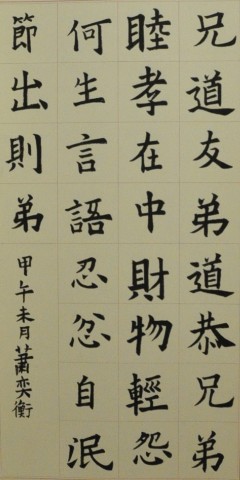 兄道友弟道恭兄弟
睦孝在中財物輕怨
何生言語忍忿自泯
節出則弟
甲午未月蕭奕衡